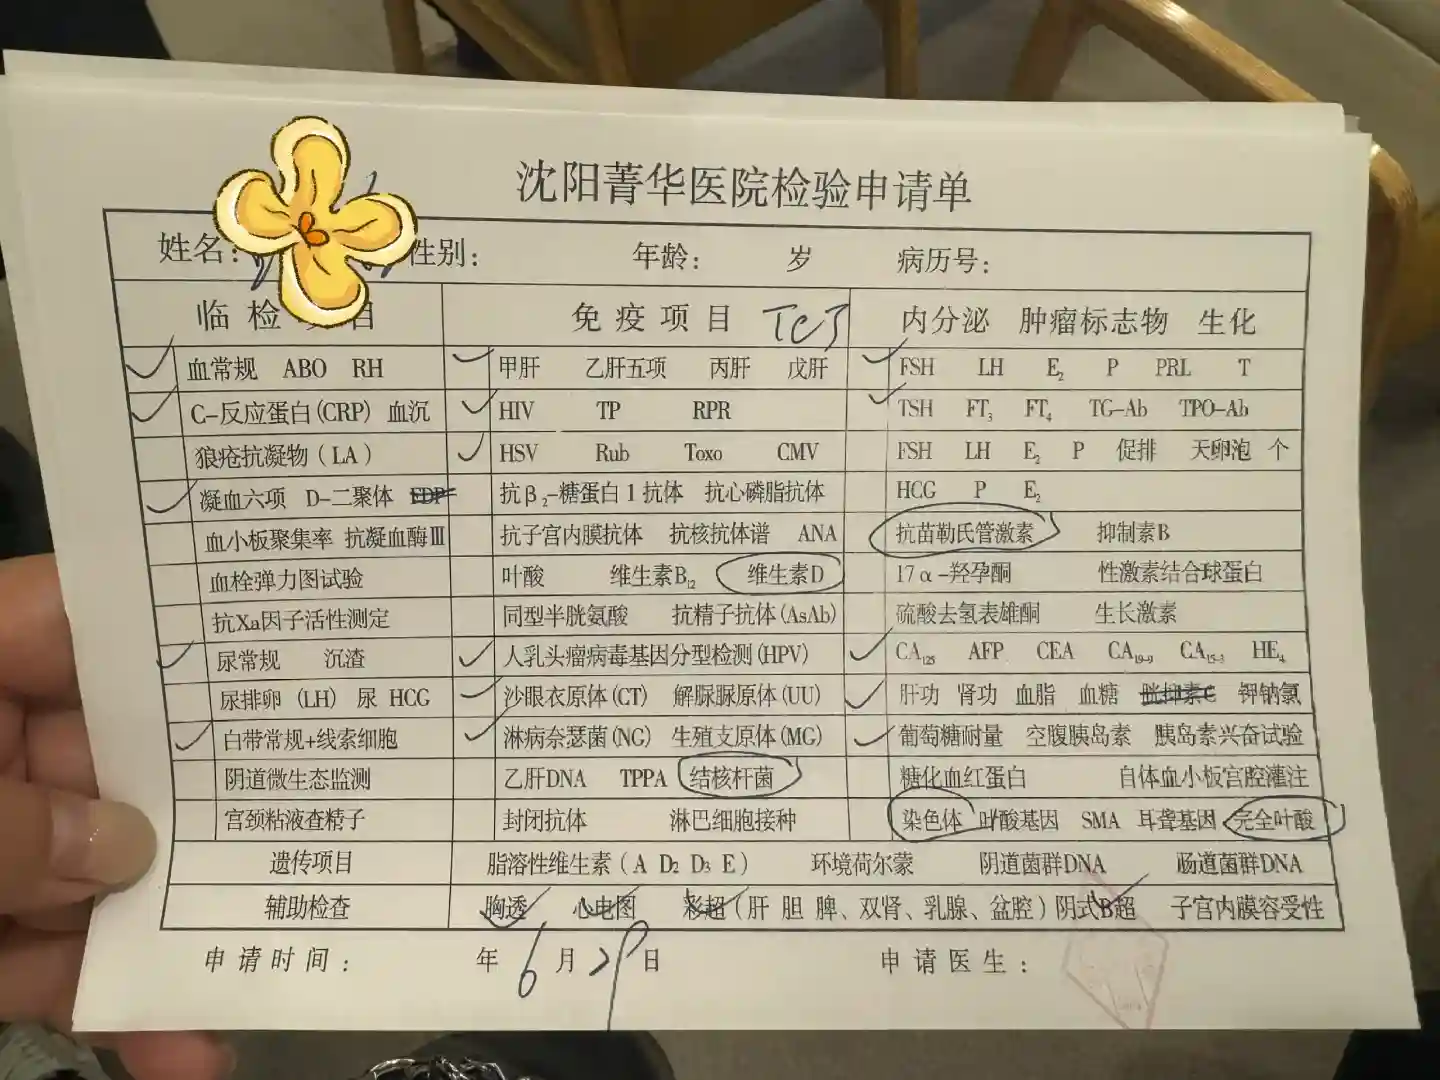 沈阳菁华医院检验申请单
姓名: 性别: 年龄: 岁 病历号:
临检 目 免疫项目 TCT 内分泌 肿瘤标志物 生化
✓ 血常规 ABO RH ✓ 甲肝 乙肝五项 丙肝 戊肝 ✓ FSH LH E₂ P PRL T
✓ C-反应蛋白(CRP) 血沉 ✓ HIV TP RPR ✓ TSH FT₃ FT₄ TG-Ab TPO-Ab
狼疮抗凝物(LA) ✓ HSV Rub Toxo CMV FSH LH E₂ P 促排 天卵泡 个
✓ 凝血六项 D-二聚体 FDP 抗β₂-糖蛋白1抗体 抗心磷脂抗体 HCG P E₂
血小板聚集率 抗凝血酶Ⅲ 抗子宫内膜抗体 抗核抗体谱 ANA 抗苗勒氏管激素 抑制素B
血栓弹力图试验 叶酸 维生素B₁₂ 维生素D 17α-羟孕酮 性激素结合球蛋白
抗Xa因子活性测定 同型半胱氨酸 抗精子抗体(AsAb) 硫酸去氢表雄酮 生长激素
✓ 尿常规 沉渣 ✓ 人乳头瘤病毒基因分型检测(HPV) ✓ CA₁₂₅ AFP CEA CA₁₉₋₉ CA₁₅₋₃ HE₄
尿排卵(LH) 尿HCG ✓ 沙眼衣原体(CT) 解脲脲原体(UU) ✓ 肝功 肾功 血脂 血糖 胱抑素C 钾钠氯
✓ 白带常规+线索细胞 ✓ 淋病奈瑟菌(NG) 生殖支原体(MG) ✓ 葡萄糖耐量 空腹胰岛素 胰岛素兴奋试验
阴道微生态监测 乙肝DNA TPPA 结核杆菌 糖化血红蛋白 自体血小板宫腔灌注
宫颈粘液查精子 封闭抗体 淋巴细胞接种 染色体 叶酸基因 SMA 耳聋基因 完全叶酸
遗传项目 脂溶性维生素(A D₂ D₃ E) 环境荷尔蒙 阴道菌群DNA 肠道菌群DNA
辅助检查 胸透 心电图 彩超(肝 胆 脾、双肾、乳腺、盆腔)阴式B超 子宫内膜容受性
申请时间: 年 6 月 29 日 申请医生: